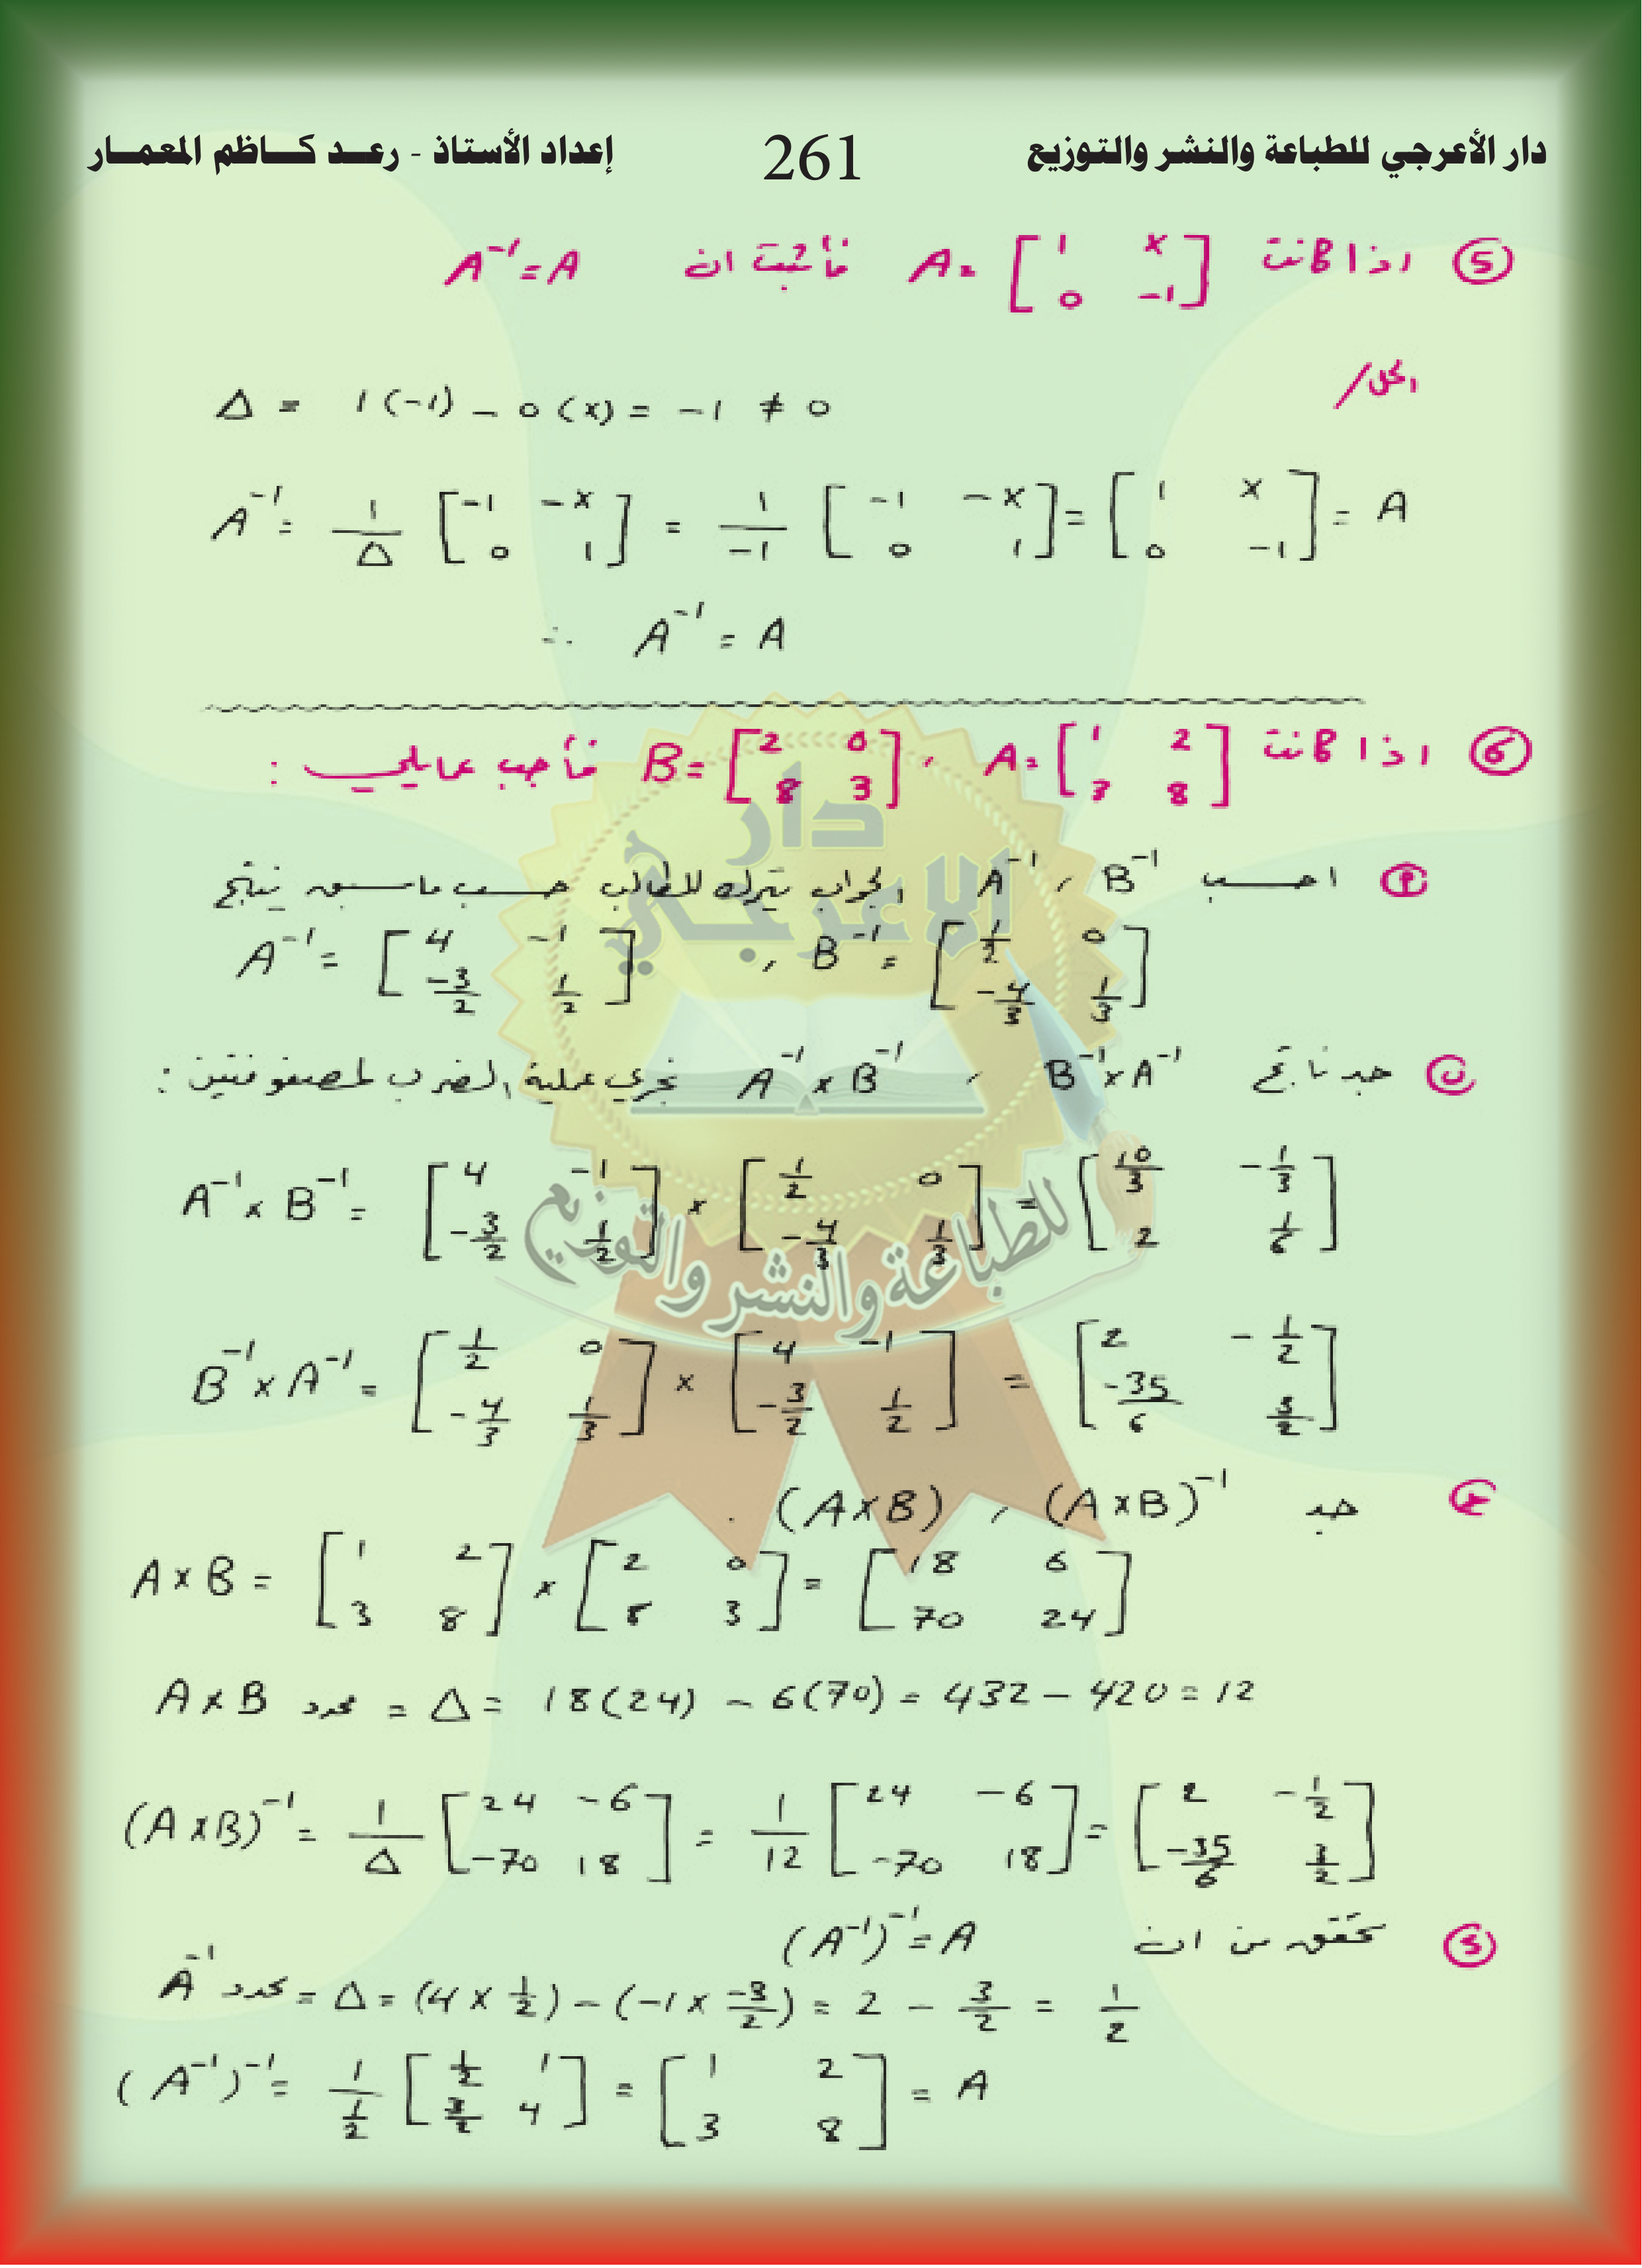 دار الأعرجي للطباعة والنشر والتوزيع 261 إعداد الأستاذ - رعــد كــاظم المعمــار
⑤ اذا كانت A = [1 x ; 0 -1] فأثبت ان A⁻¹ = A
الحل /
Δ = 1(-1) - 0(x) = -1 ≠ 0
A⁻¹ = 1/Δ [-1 -x ; 0 1] = 1/-1 [-1 -x ; 0 1] = [1 x ; 0 -1] = A
∴ A⁻¹ = A
⑥ اذا كانت A = [1 2 ; 3 8] ، B = [2 0 ; 8 3] فأجب عما يلي :
Ⓟ احسب B⁻¹ ، A⁻¹ الجواب يترك للطالب حسب ما سبق ينتج
A⁻¹ = [4 -1 ; -3/2 1/2] ، B⁻¹ = [1/2 0 ; -4/3 1/3]
ب جد ناتج B⁻¹ × A⁻¹ ، A⁻¹ × B⁻¹ نجري عملية الضرب لمصفوفتين :
A⁻¹ × B⁻¹ = [4 -1 ; -3/2 1/2] × [1/2 0 ; -4/3 1/3] = [10/3 -1/3 ; 2 1/6]
B⁻¹ × A⁻¹ = [1/2 0 ; -4/3 1/3] × [4 -1 ; -3/2 1/2] = [2 -1/2 ; -35/6 3/2]
ج جد (A×B)⁻¹ ، (A×B) .
A × B = [1 2 ; 3 8] × [2 0 ; 8 3] = [18 6 ; 70 24]
A × B محدد = Δ = 18(24) - 6(70) = 432 - 420 = 12
(A×B)⁻¹ = 1/Δ [24 -6 ; -70 18] = 1/12 [24 -6 ; -70 18] = [2 -1/2 ; -35/6 3/2]
د تحقق من ان (A⁻¹)⁻¹ = A
A⁻¹ محدد = Δ = (4 × 1/2) - (-1 × -3/2) = 2 - 3/2 = 1/2
(A⁻¹)⁻¹ = 1/(1/2) [1/2 1 ; 3/2 4] = [1 2 ; 3 8] = A
دار
الاعرجي
للطباعة والنشر والتوزيع